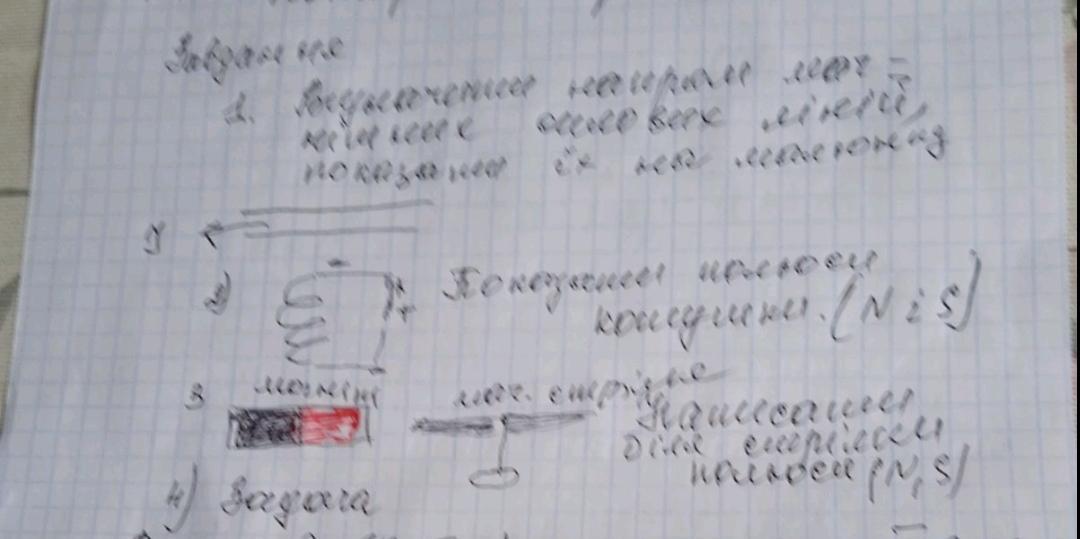 Завдання
1. Визначити напрям маг-
нітних силових ліній,
показати їх на малюнку
1)
2) - + Показати полюси
котушки. (N і S)
3 магніт маг. стрілка
Написати
біля стрілки
полюси (N, S)
4) Задача